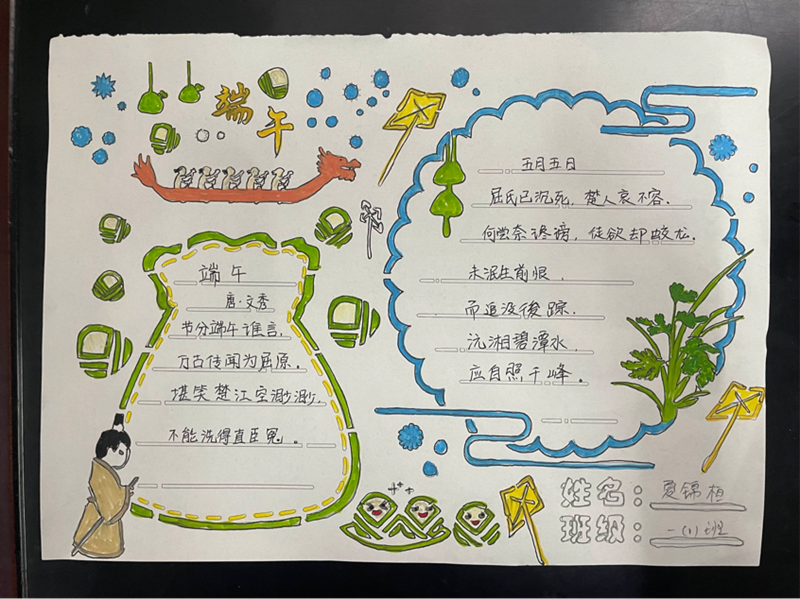 端午
端午
唐·文秀
节分端午谁言，
万古传闻为屈原。
堪笑楚江空渺渺，
不能洗得直臣冤。
五月五日
屈氏已沉死，楚人哀不容。
何尝奈谗谤，徒欲却蛟龙。
未泯生前恨，
而追没後踪。
沅湘碧潭水，
应自照千峰。
姓名：夏锦桓
班级：一(1)班